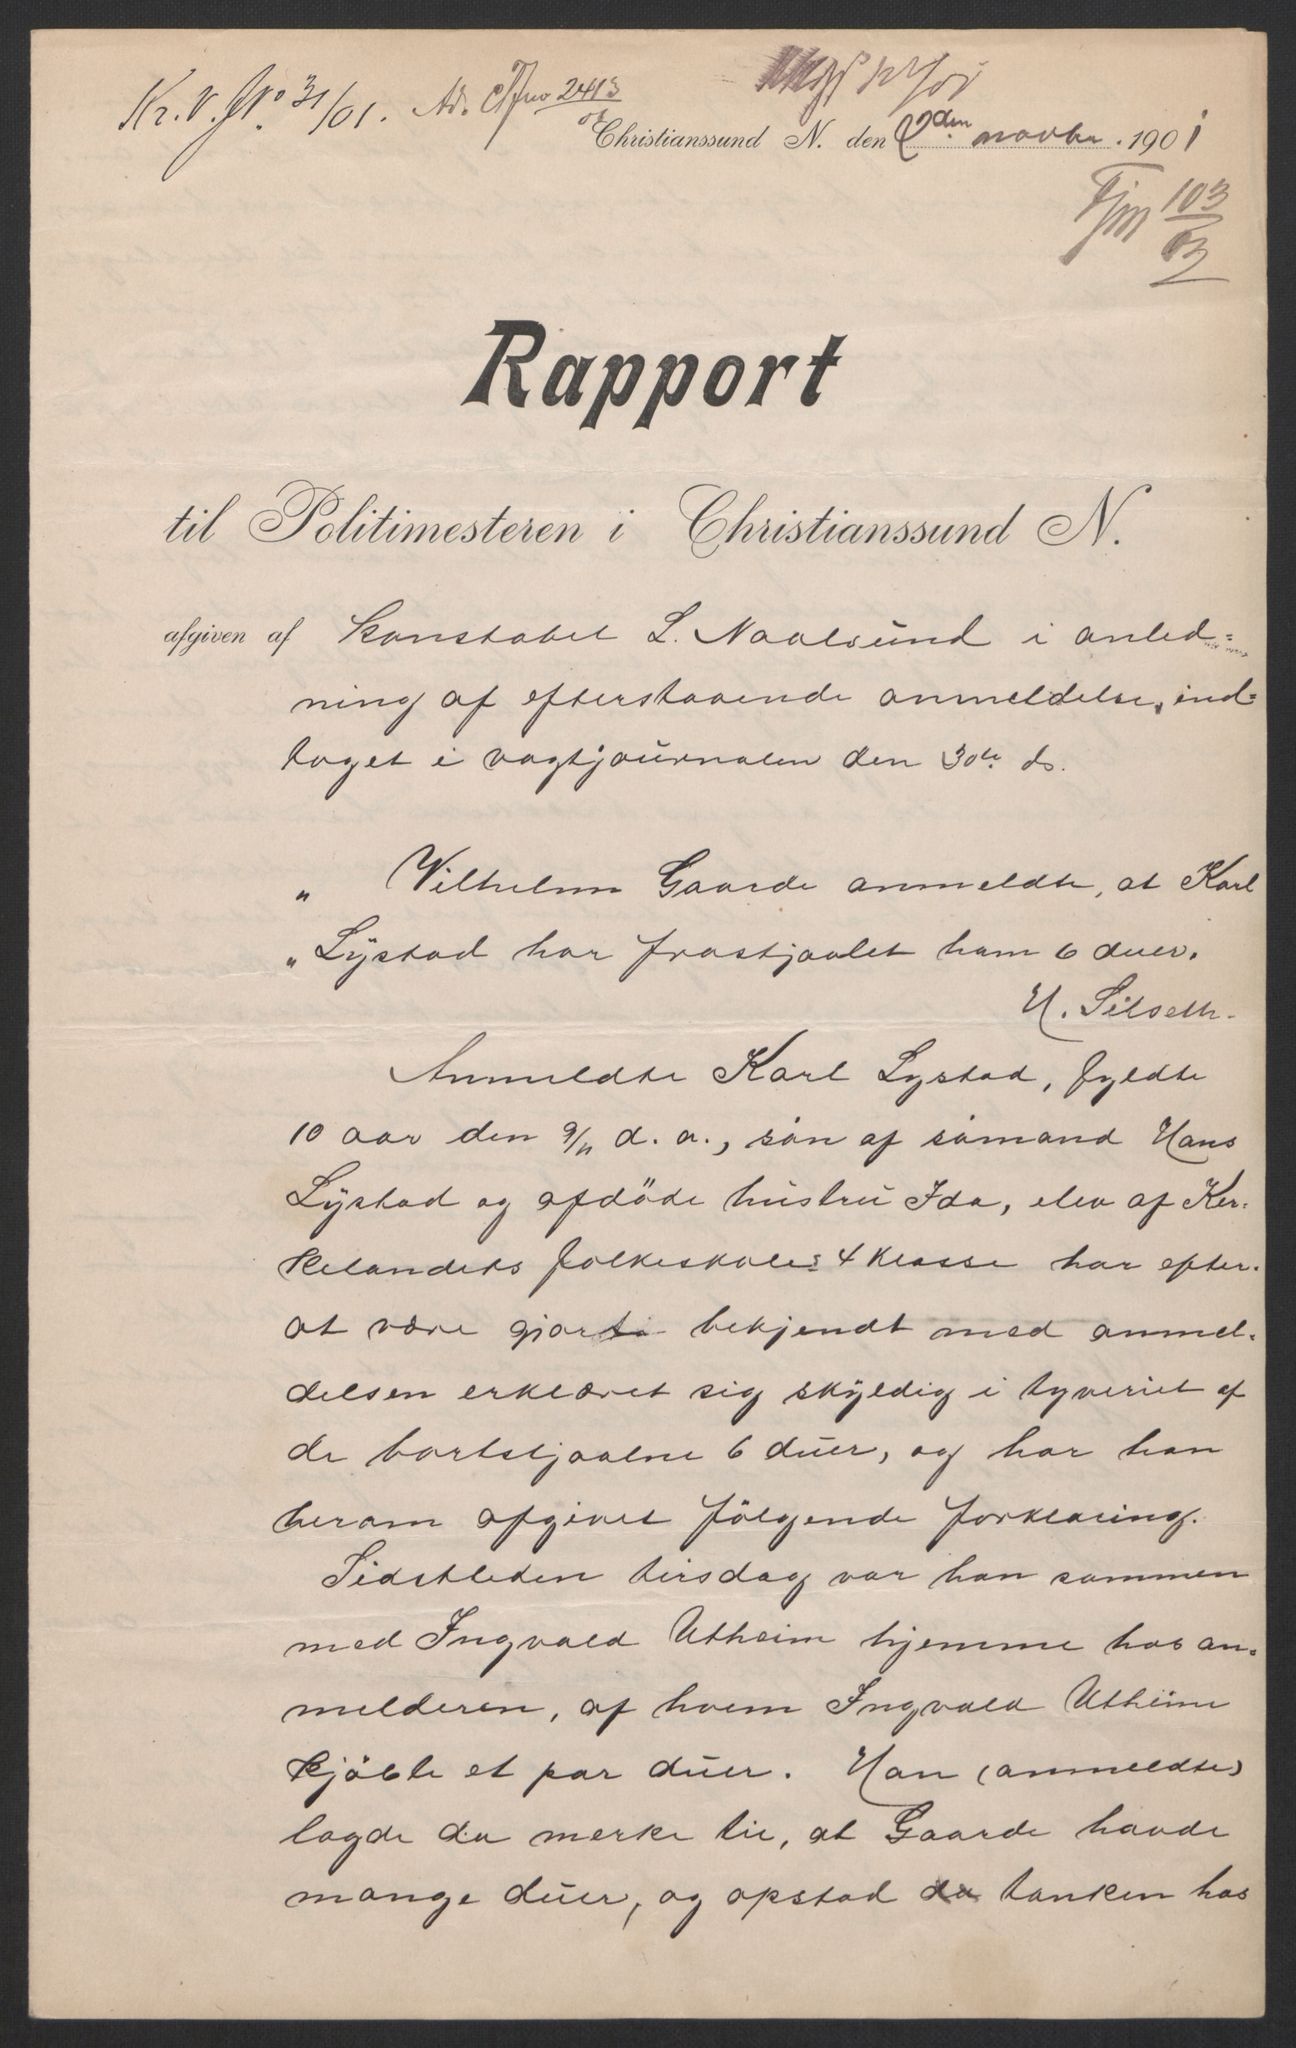 Kr. V. J. No 31/01. Ad. Tjno 2413/01
Christianssund N. den 2den novbr. 1901
Tjm 103/02
Rapport
til Politimesteren i Christianssund N.
afgiven af Konstabel L. Naalsund i anled=
ning af efterstaaende anmeldelse, ind=
taget i vagtjournalen den 30te ds.
" Vilhelm Gaarde anmeldte, at Karl
" Lystad har frastjaalet ham 6 duer.
H. Silseth.
Anmeldte Karl Lystad, fyldte
10 aar den 9/11 d. a., søn af sømand Hans
Lystad og afdøde hustru Ida, elev af Kir-
kelandets folkeskoles 4 klasse har efter-
at være gjort bekjendt med anmel-
delsen erklæret sig skyldig i tyveriet af
de bortstjaalne 6 duer, og har han
herom afgivet følgende forklaring.
Sidstleden tirsdag var han sammen
med Ingvald Utheim hjemme hos an-
melderen, af hvem Ingvald Utheim
kjøbte et par duer. Han (anmeldte)
lagde da merke til, at Gaarde havde
mange duer, og opstod da tanken hos